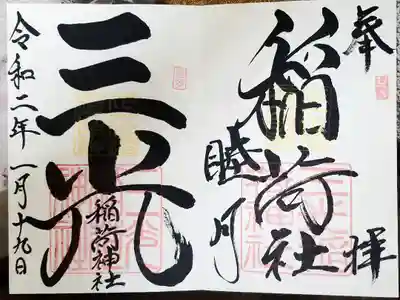 奉拝
稲荷社
睦月
三光
稲荷神社
令和二年一月十九日